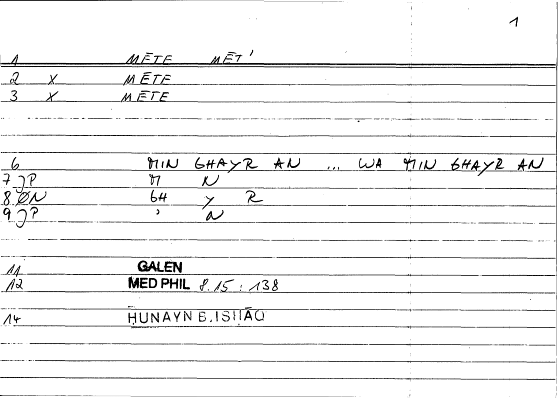 1
1 METE MET'
2 X METE
3 X METE
6 MIN GHAYR AN ... WA MIN GHAYR AN
7 JP M N
8 ØN GH Y R
9 JP ' N
11 GALEN
12 MED PHIL 8.15 : 138
14 ḤUNAYN B. ISḤĀQ